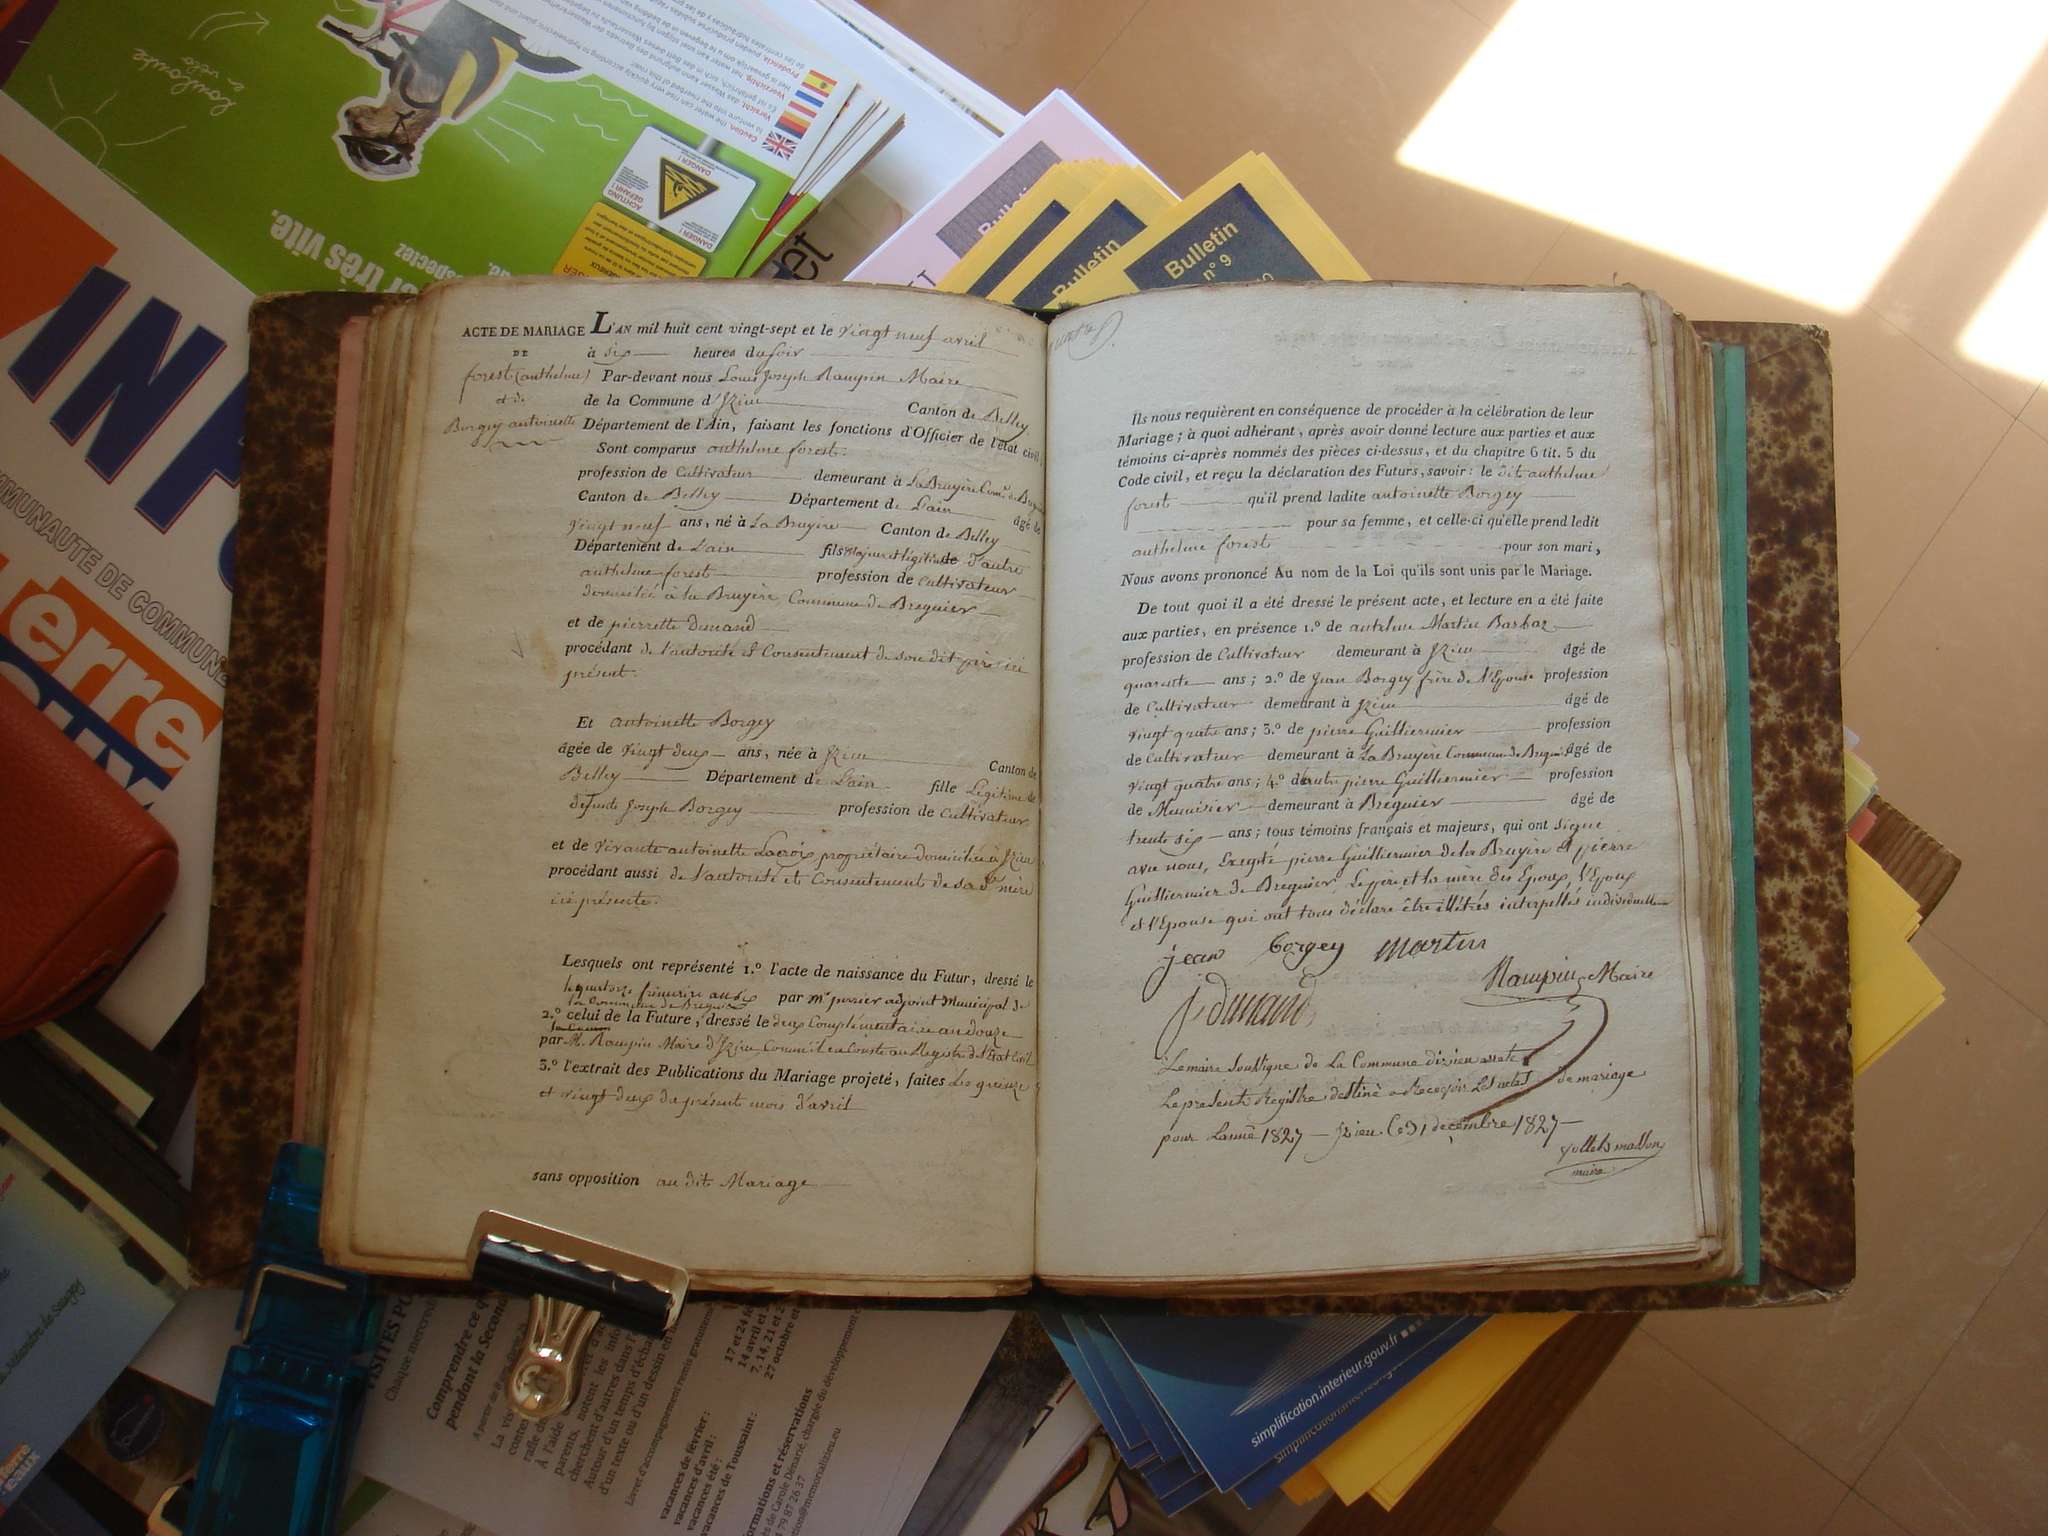 ACTE DE MARIAGE
DE
forest (anthelme)
et de
Borgey antoinette
L'AN mil huit cent vingt-sept et le vingt neuf avril
à six heures du soir
Par-devant nous Louis Joseph Rampin Maire
de la Commune d'Izieu Canton de Belley
Département de l'Ain, faisant les fonctions d'Officier de l'état civil,
Sont comparus anthelme forest.
profession de Cultivateur demeurant à La Bruyère
Canton de Belley Département de L'ain âgé de
vingt neuf ans, né à La Bruyère Canton de Belley
Département de L'ain fils Majeur et légitime de d'autre
anthelme forest profession de Cultivateur
domicilié à la Bruyère, Commune de Breguier
et de pierrette Dunand
procédant de l'autorité & Consentement de son dit père ici
présent.
Et antoinette Borgey
âgée de vingt deux ans, née à Izieu Canton de
Belley Département de L'ain fille Légitime de
defunt Joseph Borgey profession de Cultivateur
et de vivante antoinette Lacroix propriétaire domiciliée à Izieu
procédant aussi de l'autorité et Consentement de sa de mère
ici présente.
Lesquels ont représenté 1.º l'acte de naissance du Futur, dressé le
le quatorze frimaire an six par mr perrier adjoint Municipal de
la Commune de Breguier
2.º celui de la Future, dressé le deux Complémentaire an douze
par M. Rampin Maire d'Izieu Comme il en Conste au Registre de l'Etat Civil
3.º l'extrait des Publications du Mariage projeté, faites Le quinze
et vingt deux du présent mois d'avril
sans opposition au dit Mariage
Ils nous requièrent en conséquence de procéder à la célébration de leur
Mariage; à quoi adhérant, après avoir donné lecture aux parties et aux
témoins ci-après nommés des pièces ci-dessus, et du chapitre 6 tit. 5 du
Code civil, et reçu la déclaration des Futurs, savoir: le dit anthelme
forest qu'il prend ladite antoinette Borgey
pour sa femme, et celle-ci qu'elle prend ledit
anthelme forest pour son mari,
Nous avons prononcé Au nom de la Loi qu'ils sont unis par le Mariage.
De tout quoi il a été dressé le présent acte, et lecture en a été faite
aux parties, en présence 1.º de antelme Martin Barbaz
profession de Cultivateur demeurant à Izieu âgé de
quarante ans; 2.º de Jean Borgey frère de l'Epouse profession
de Cultivateur demeurant à Izieu âgé de
vingt quatre ans; 3.º de pierre Guilliermier profession
de Cultivateur demeurant à La Bruyère Commune de Breguier âgé de
vingt quatre ans; 4.º de autre pierre Guilliermier profession
de Menuisier demeurant à Breguier âgé de
trente six ans; tous témoins français et majeurs, qui ont signé
avec nous, Excepté pierre Guilliermier de la Bruyère & pierre
Guilliermier de Breguier, Le père et la mère des Epoux, l'Epoux
et l'Epouse qui ont tous déclaré être illétrés interpellés individuellement
jean borgey martin
Rampin Maire
j. dunand
Le maire Soussigné de La Commune dizieu arrete
Le presente Registre destiné a Recevoir Les actes de mariage
pour Lannê 1827 — Izieu le 31 decembre 1827 —
maire
Bulletin
n° 9
Bulletin
DANGER !
ACHTUNG
GEFAHR !
DANGER !
Prudencia
Vorsicht
Caution
Toulouse
à vélo
très vite.
INFO
COMMUNAUTE DE COMMUNE
erre
VISITES
Chaque mercredi
Comprendre ce q
pendant la Second
vacances de février :
vacances d'avril :
vacances été :
vacances de Toussaint :
17 et 24 fé
14 avril et
7, 14, 21 et 2
27 octobre et
Livret d'accompagnement remis gratuitement
ormations et réservations
ès de Carole Démarié, chargée du développement
4 79 87 26 37
tion@memorializieu.eu
simplification.interieur.gouv.fr